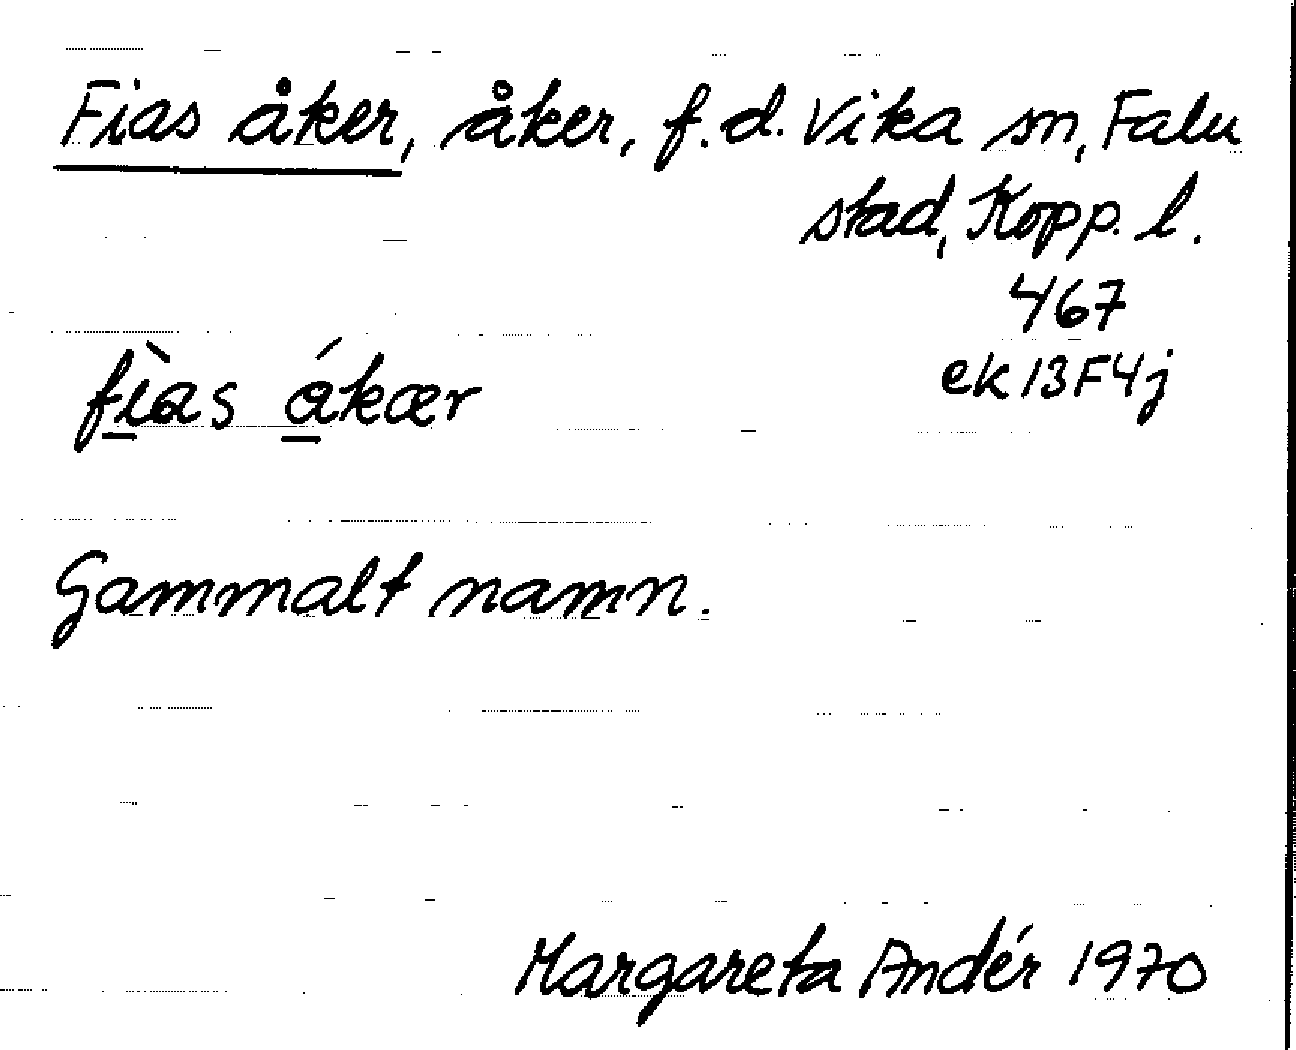 Fias åker, åker, f.d. Vika sn, Falu
stad, Kopp. l.
467
ek 13F4j
fìas ákær
Gammalt namn.
Margareta Andér 1970